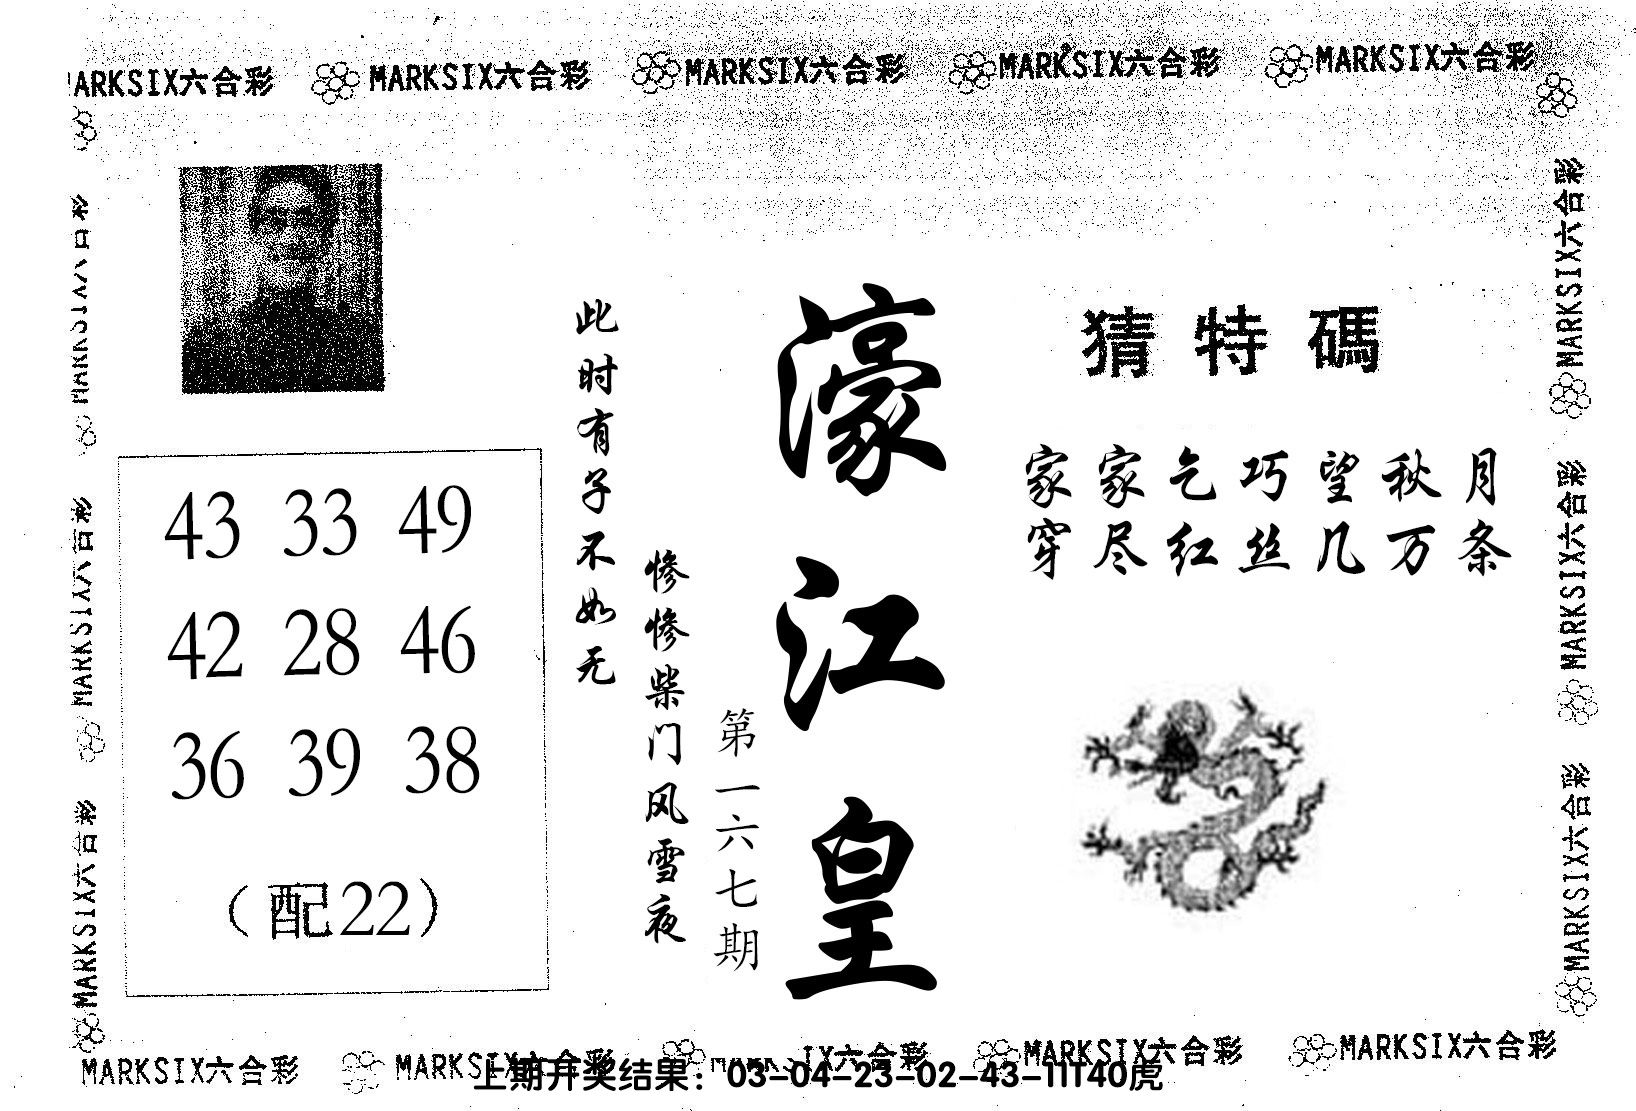 MARKSIX六合彩 MARKSIX六合彩 MARKSIX六合彩 MARKSIX六合彩
MARKSIX六合彩
猜特碼
家家乞巧望秋月
穿尽红丝几万条
濠江皇
第一六七期
惨惨柴门风雪夜
此时有子不如无
43 33 49
42 28 46
36 39 38
（配22）
MARKSIX六合彩
MARKSIX六合彩
MARKSIX六合彩
MARKSIX六合彩
MARKSIX六合彩
MARKSIX六合彩
MARKSIX六合彩 MARKSIX六合彩 MARKSIX六合彩 MARKSIX六合彩
上期开奖结果：03-04-23-02-43-11T40虎